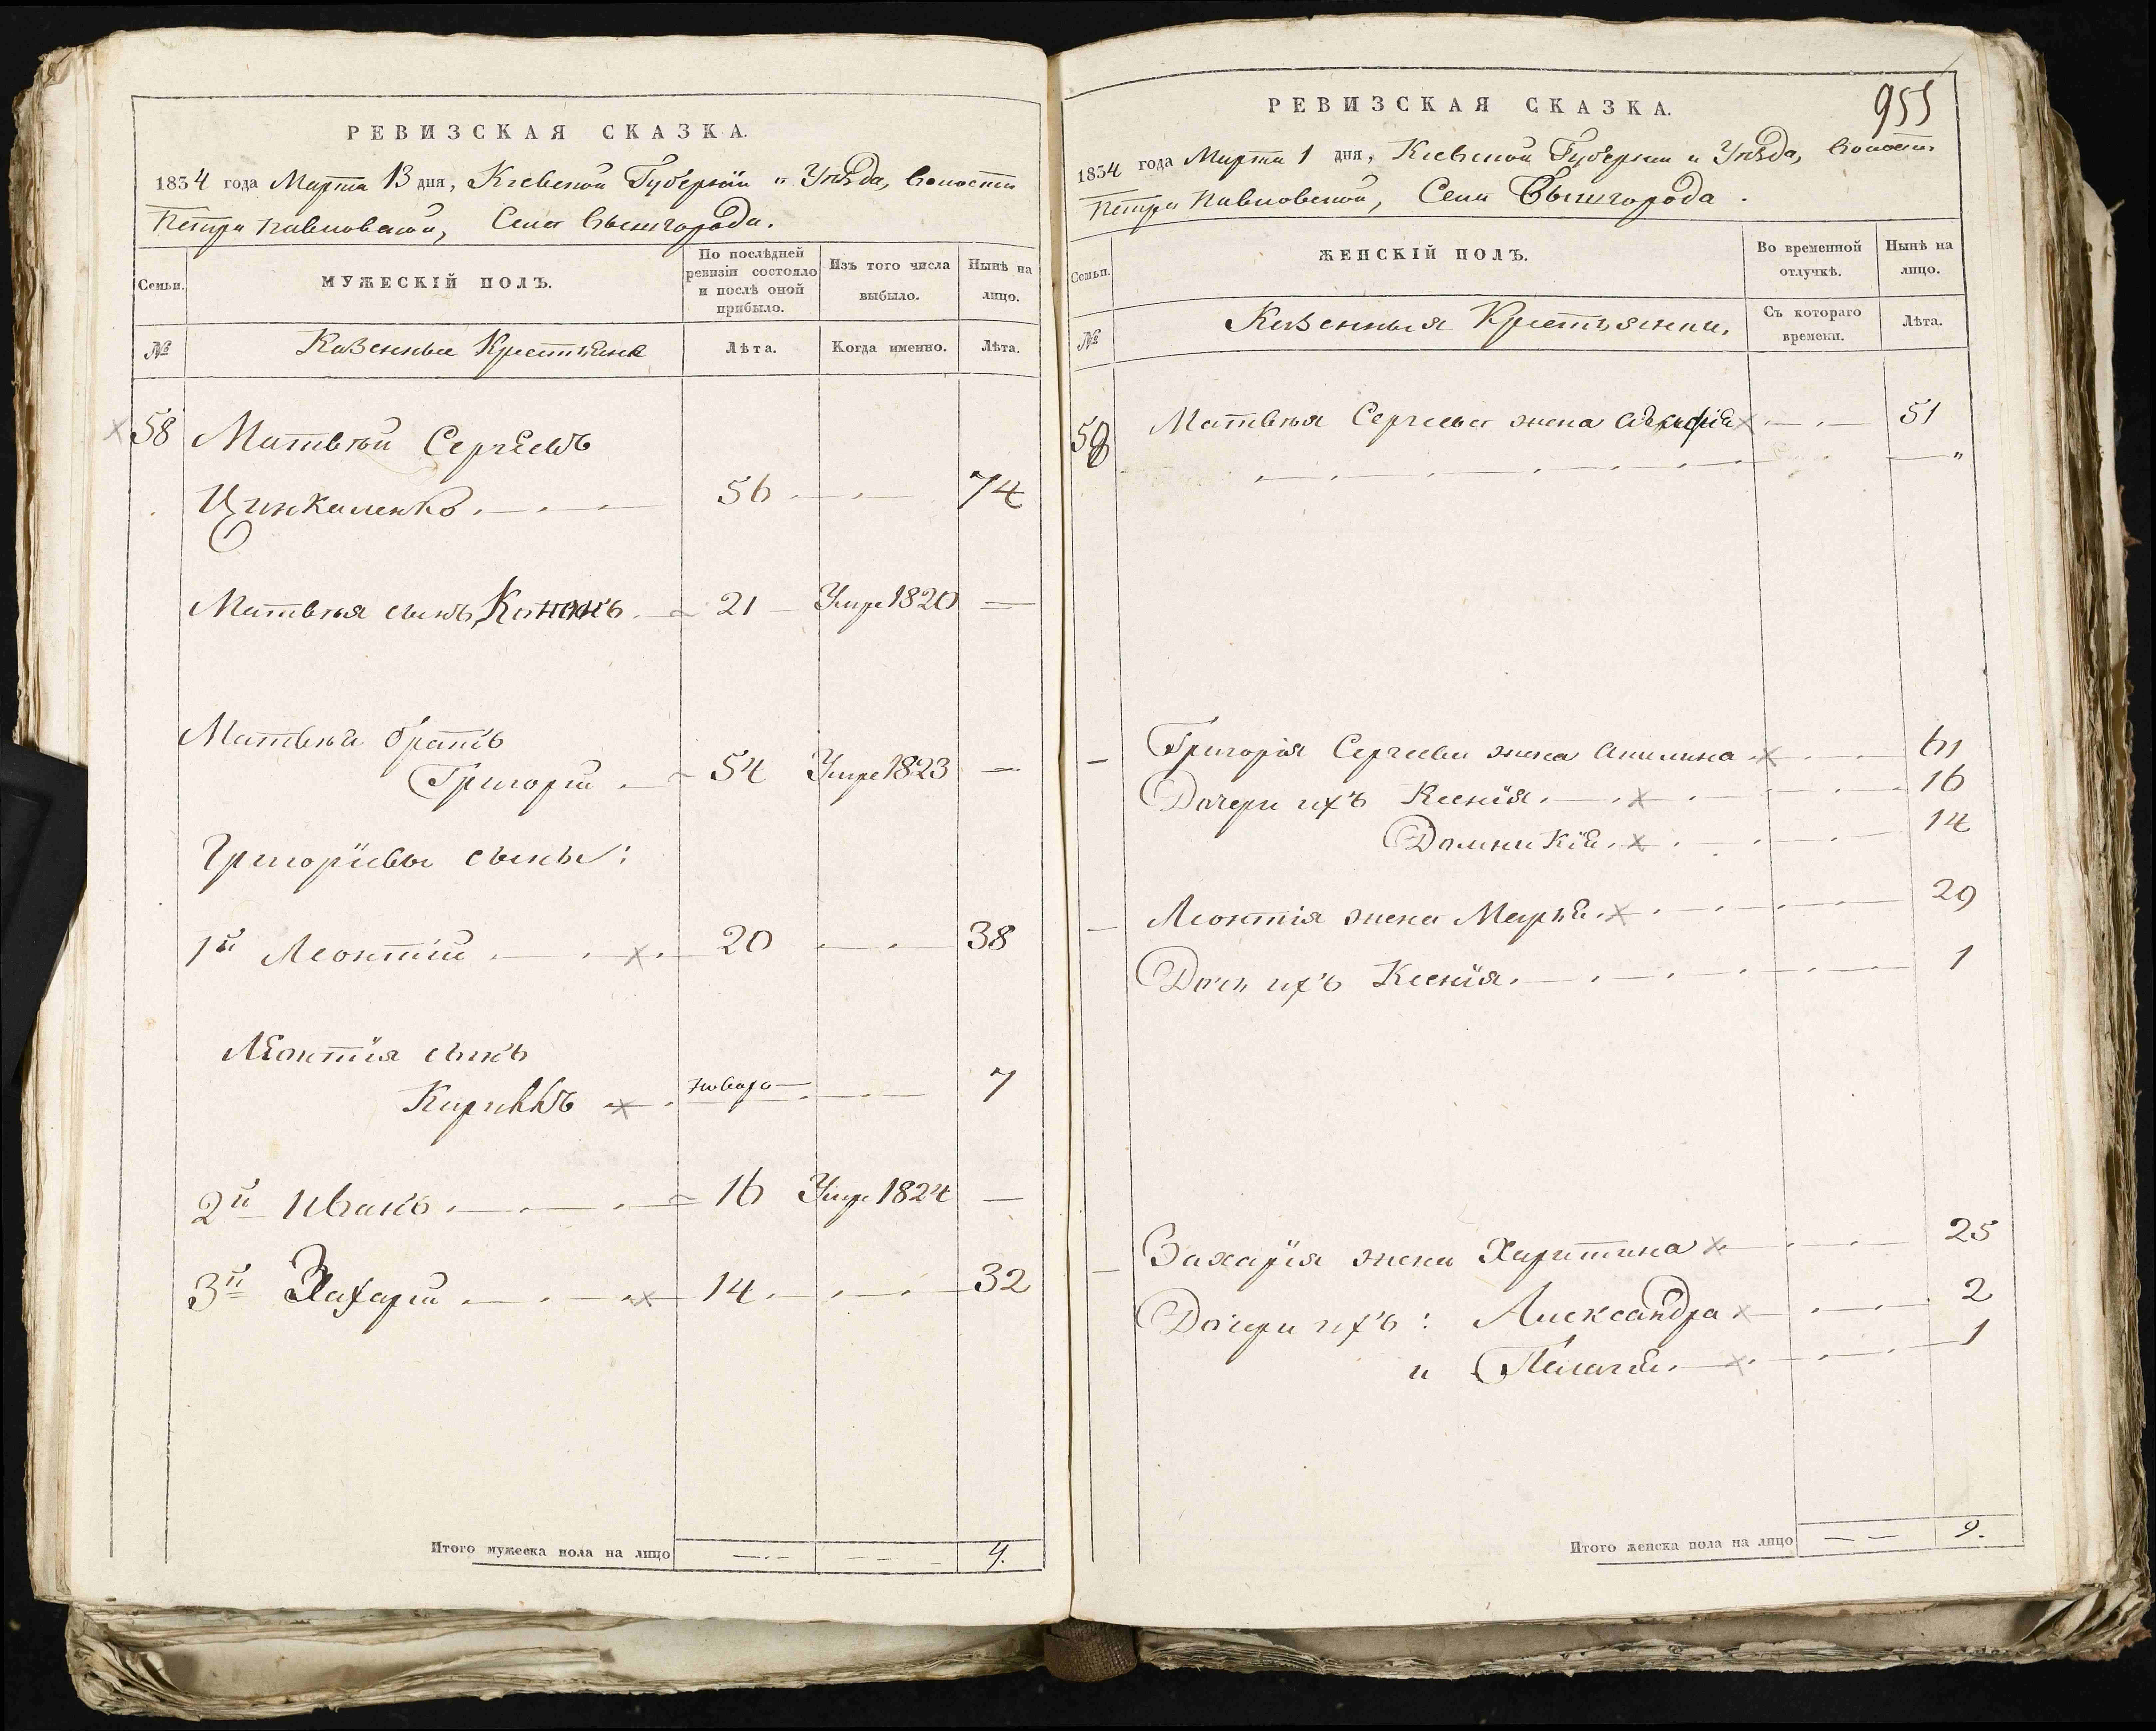 РЕВИЗСКАЯ СКАЗКА.
1834 года Марта 13 дня, Кіевской Губерніи и Уѣзда, Волости
Петро Павловской, Села Вышгорода.
Семьи.
МУЖЕСКІЙ ПОЛЪ.
По послѣдней ревизіи состояло и послѣ оной прибыло.
Изъ того числа выбыло.
Нынѣ на лицо.
№
Казенные Крестьяне
Лѣта.
Когда именно.
Лѣта.
58 Матвѣй Сергѣевъ
Цинкаленко 56 74
Матвѣя сынъ Кононъ 21 Умре 1820
Матвѣя братъ
Григорій 54 Умре 1823
Григоріевы сыны:
1й Леонтій 20 38
Леонтія сынъ
Кириллъ 7
2й Иванъ 16 Умре 1824
3й Захарій 14 32
Итого мужеска пола на лицо 4.
955
РЕВИЗСКАЯ СКАЗКА.
1834 года Марта 1 дня, Кіевской Губерніи и Уѣзда, Волости
Петро Павловской, Села Вышгорода.
Семьи.
ЖЕНСКІЙ ПОЛЪ.
Во временной отлучкѣ.
Нынѣ на лицо.
№
Казенныя Крестьянки,
Съ котораго времени.
Лѣта.
58 Матвѣя Сергѣева жена 51
Григорія Сергѣева жена Акилина 61
Дочери ихъ Ксенія 16
Домникія 14
Леонтія жена Марья 29
Дочь ихъ Ксенія 1
Захарія жена Харитина 25
Дочери ихъ: Александра 2
и Пелагія 1
Итого женска пола на лицо 9.